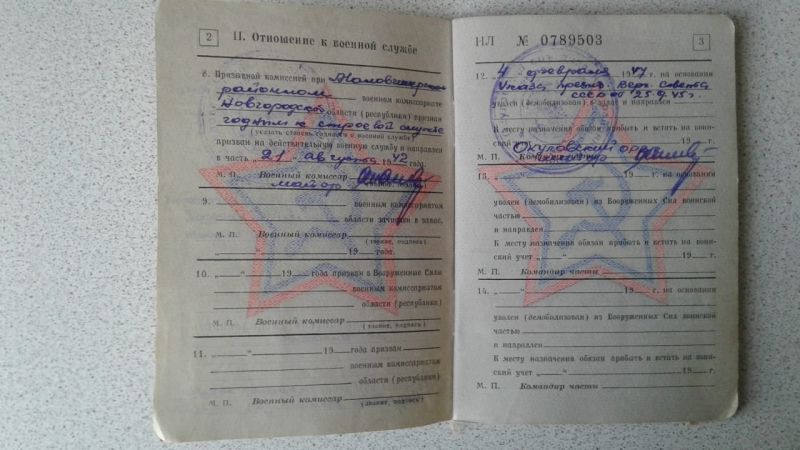 2
II. Отношение к военной службе
8. Призывной комиссией при Маловишерском
районном военном комиссариате
Новгородской области (республики) признан
годным к строевой службе
(указать степень годности к военной службе)
призван на действительную военную службу и направлен
в часть „21“ августа 1942 года.
М. П. Военный комиссар
майор (звание, подпись)
9. военным комиссариатом
области зачислен в запас.
М. П. Военный комиссар
(звание, подпись)
„ “ 19 года.
10. „ “ 19 года призван в Вооруженные Силы
военным комиссариатом
области (республики)
М. П. Военный комиссар
(звание, подпись)
11. „ “ 19 года призван
военным комиссариатом
области (республики)
М. П. Военный комиссар
(звание, подпись)
НЛ № 0789503
3
12. 4 февраля 1947 г. на основании
Указа През. Верх. Совета
СССР от 25.9.45 г.
уволен (демобилизован) в запас и направлен
К месту назначения обязан прибыть и встать на воин-
ский учет
Окуловский
М. П. Командир части
13. „ “ 19 г. на основании
уволен (демобилизован) из Вооруженных Сил воинской
частью
и направлен
К месту назначения обязан прибыть и встать на воин-
ский учет „ “ 19 г.
М. П. Командир части
14. „ “ 19 г. на основании
уволен (демобилизован) из Вооруженных Сил воинской
частью
и направлен
К месту назначения обязан прибыть и встать на воин-
ский учет „ “ 19 г.
М. П. Командир части